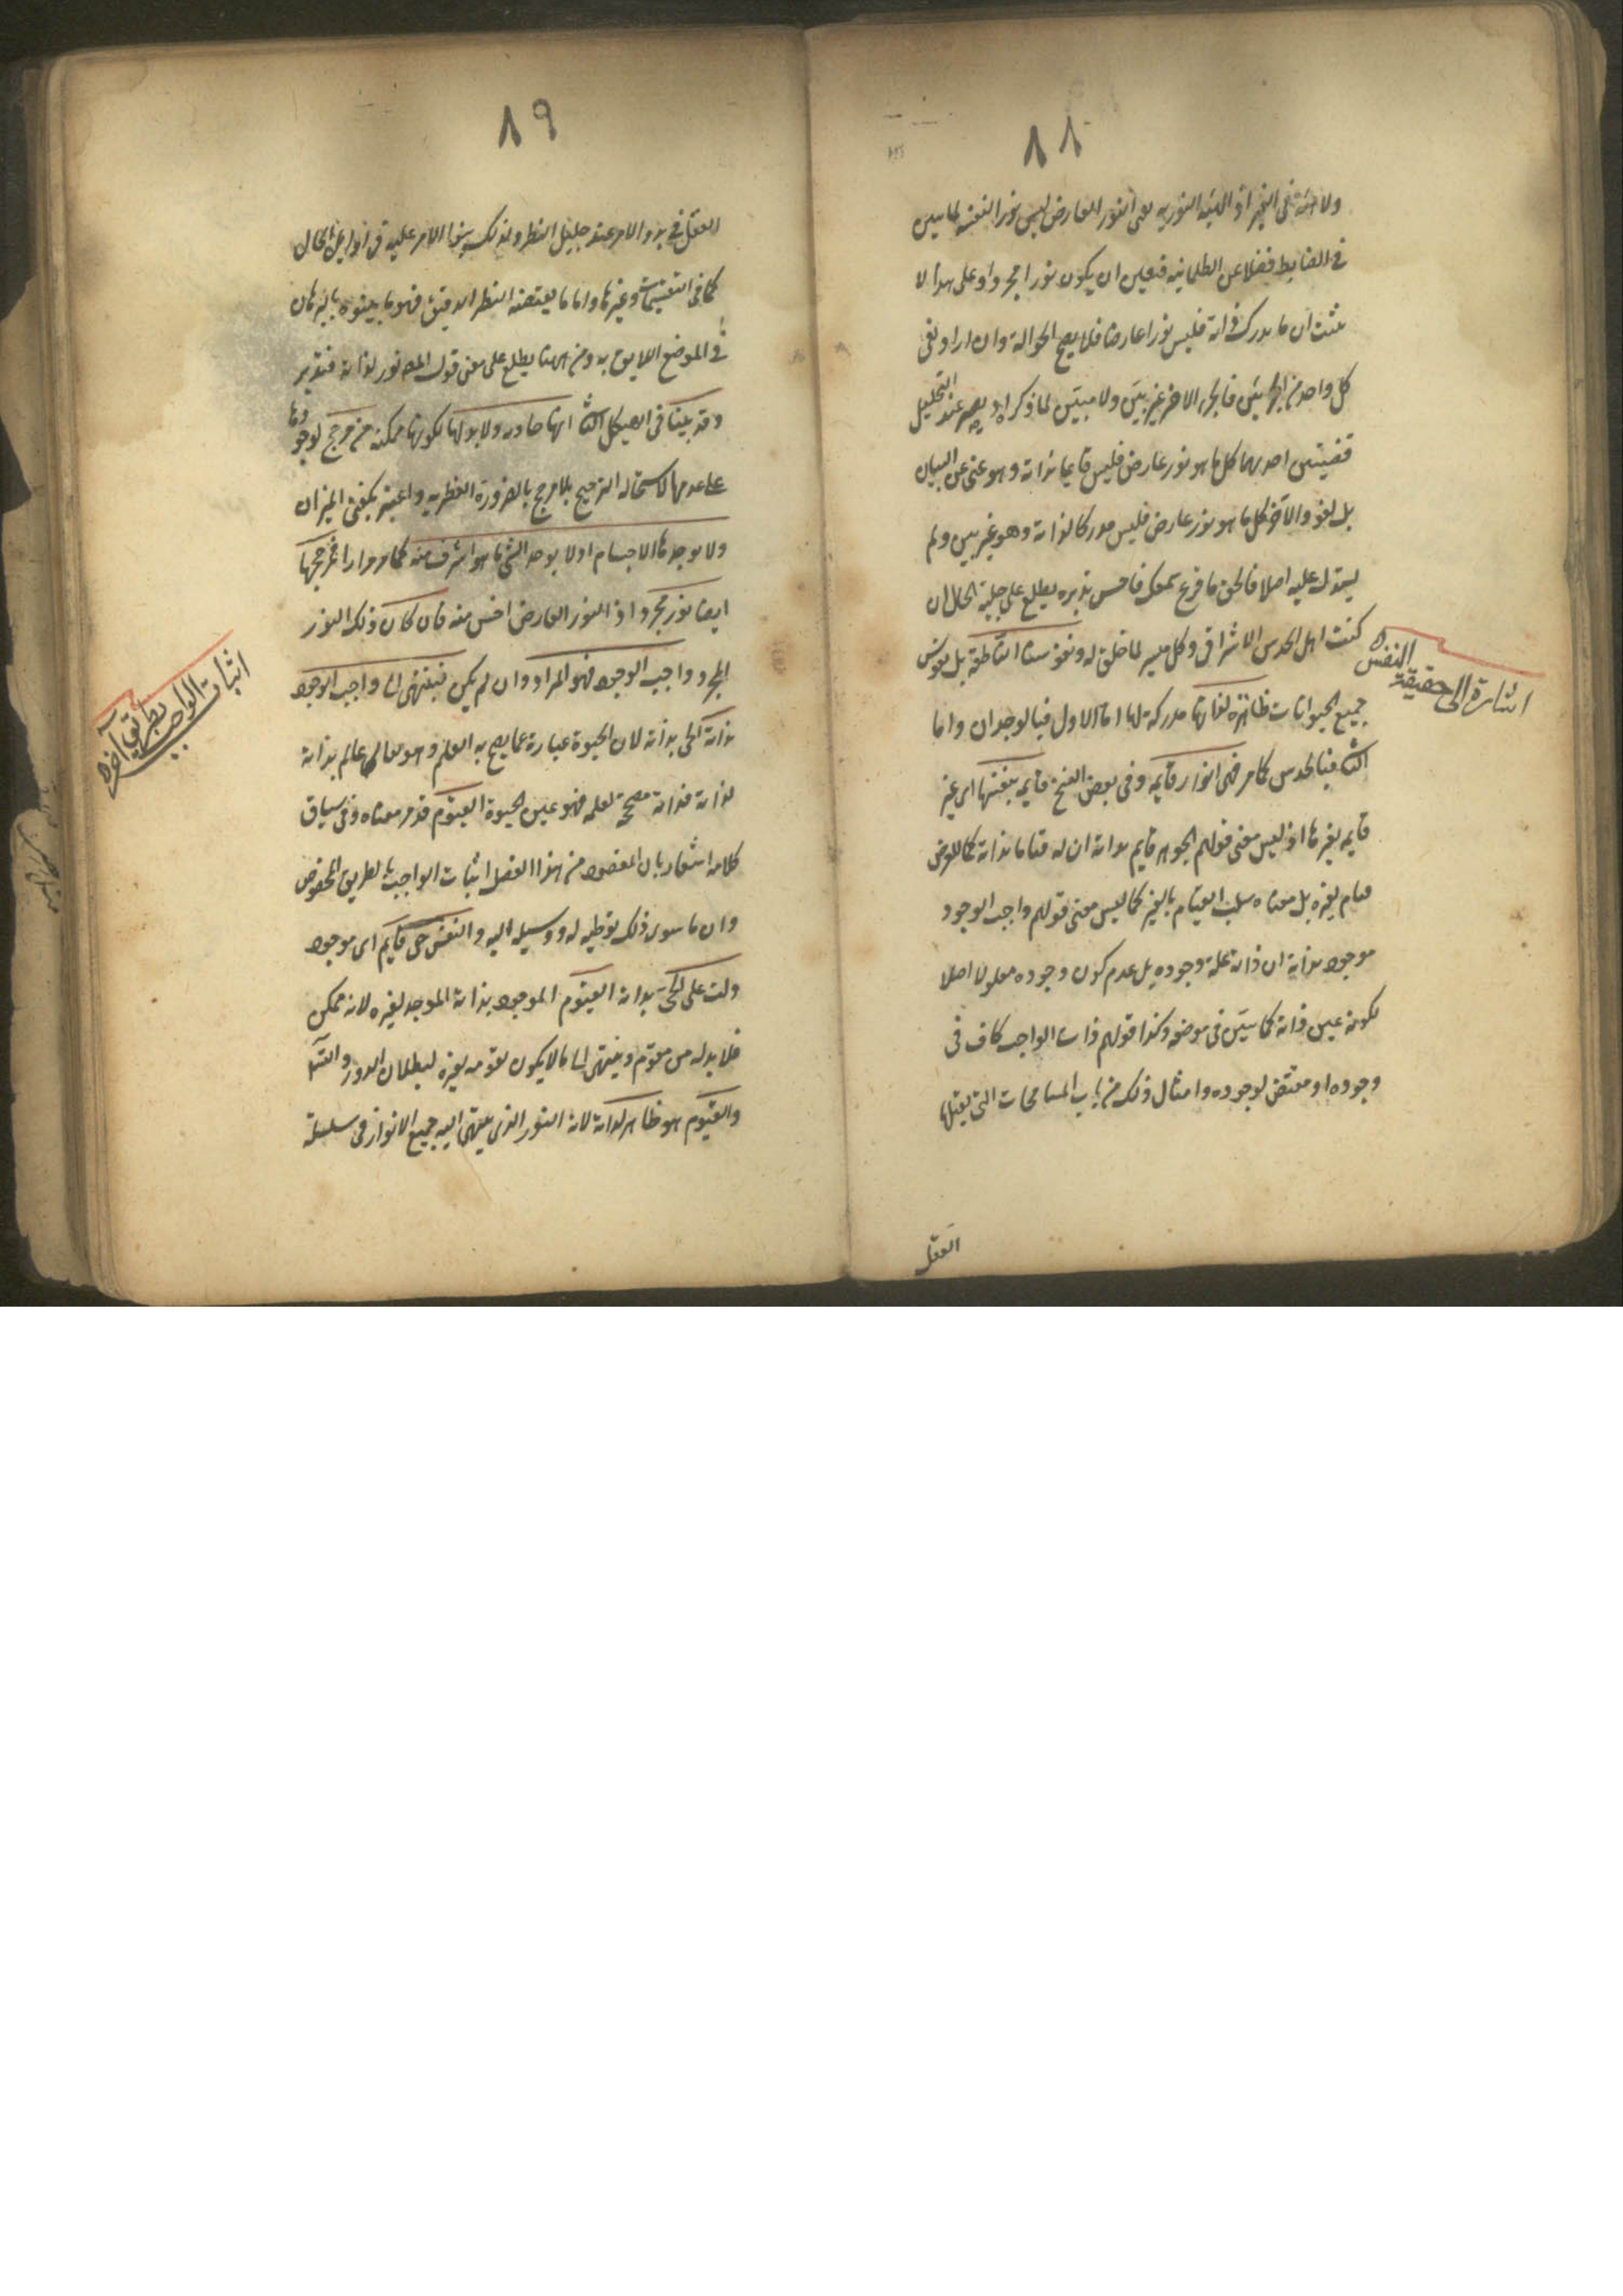 ٨٨
ولا هيئة في الغير اذ الهيئة النورية يعني النور العارض ليس نورا لنفسه لما تبين
في الضابط فضلا عن الظلمانية فتعين ان يكون نورا مجردا وعلى هذا لا
يثبت ان ما يدرك ذاته فليس نورا عارضا فلا يصح الحوالة وان اراد نفى
كل واحد من الجزئين فالجزء الاخر غير بين ولا مبين لما ذكر اذ يصير عند التحليل
قضيتين احديهما كل ما هو نور عارض فليس قايما بذاته وهو غنى عن البيان
بل لغو والاخرى كل ما هو نور عارض فليس مدركا لذاته وهو غير بين ولم
يستدل عليه اصلا فالحق ما قرع سمعك فاحسن تدبره يطلع على جلية الحال ان
كنت اهل الحدس الاشراقى وكل ميسر لما خلق له ونفوسنا الناطقة بل نفوس
جميع الحيوانات ظاهرة لذاتها مدركة لها اما الاول فبالوجدان واما
الثانى فبالحدس كما مر فهى انوار قايمة وفى بعض النسخ قايمة بنفسها اى غير
قايمة بغيرها اذ ليس معنى قولهم الجوهر قايم بذاته ان له قياما بذاته كما للعرض
قيام بغيره بل معناه سلب القيام بالغير كما ليس معنى قولهم واجب الوجود
موجود بذاته ان ذاته علة وجوده بل عدم كون وجوده معلولا اصلا
لكونه عين ذاته كما سيبين فى موضعه وكذا قولهم ذات الواجب كاف فى
وجوده او مقتض لوجوده وامثال ذلك من باب المسامحات التى يقبلها
العقل
اشارة الى حقيقة النفس
٨٩
العقل في بدو الامر عند جليل النظر ولذلك بنوا الامر عليه فى اوايل الحال
كما فى التقسيمات وغيرها واما ما يقتضيه النظر الدقيق فهو ما بينوه بالبرهان
فى الموضع اللايق به ومن ههنا يطلع على معنى قول المص نور لذاته فتدبر
وقد بينا فى الهيكل الثانى انها حادثة ولا بد لها لكونها ممكنة من مرجح لوجودها
على عدمها لاستحالة الترجيح بلا مرجح بالضرورة الفطرية واعتبر بكفتى الميزان
ولا يوجدها الاجسام اذ لا يوجد الشئ ما هو اشرف منه كما مر مرارا فمرجحها
ايضا نور مجرد اذ النور العارض اخس منه فان كان ذلك النور
المجرد واجب الوجود فهو المراد وان لم يكن فينتهى الى واجب الوجود
بذاته الحى بذاته لان الحيوة عبارة عما يصح به العلم وهو تعالى عالم بذاته
لذاته فذاته مصححة لعلمه فهو عين الحيوة القيوم قد مر معناه وفى سياق
كلامه اشعار بان المقصود من هذا الفصل اثبات الواجب بالطريق المخصوص
وان ما سوى ذلك توطئة له ووسيلة اليه والنفس حى قايم اى موجود
دلت على الحى بذاته القيوم الموجود بذاته الموجد لغيره لانه ممكن
فلا بد له من مقوم وينتهى الى ما لا يكون تقومه بغيره لبطلان الدور والتسلسل
والقيوم هو ظاهر لذاته لانه النور الذى ينتهى اليه جميع الانوار فى سلسلة
اثبات الواجب بطريق آخر